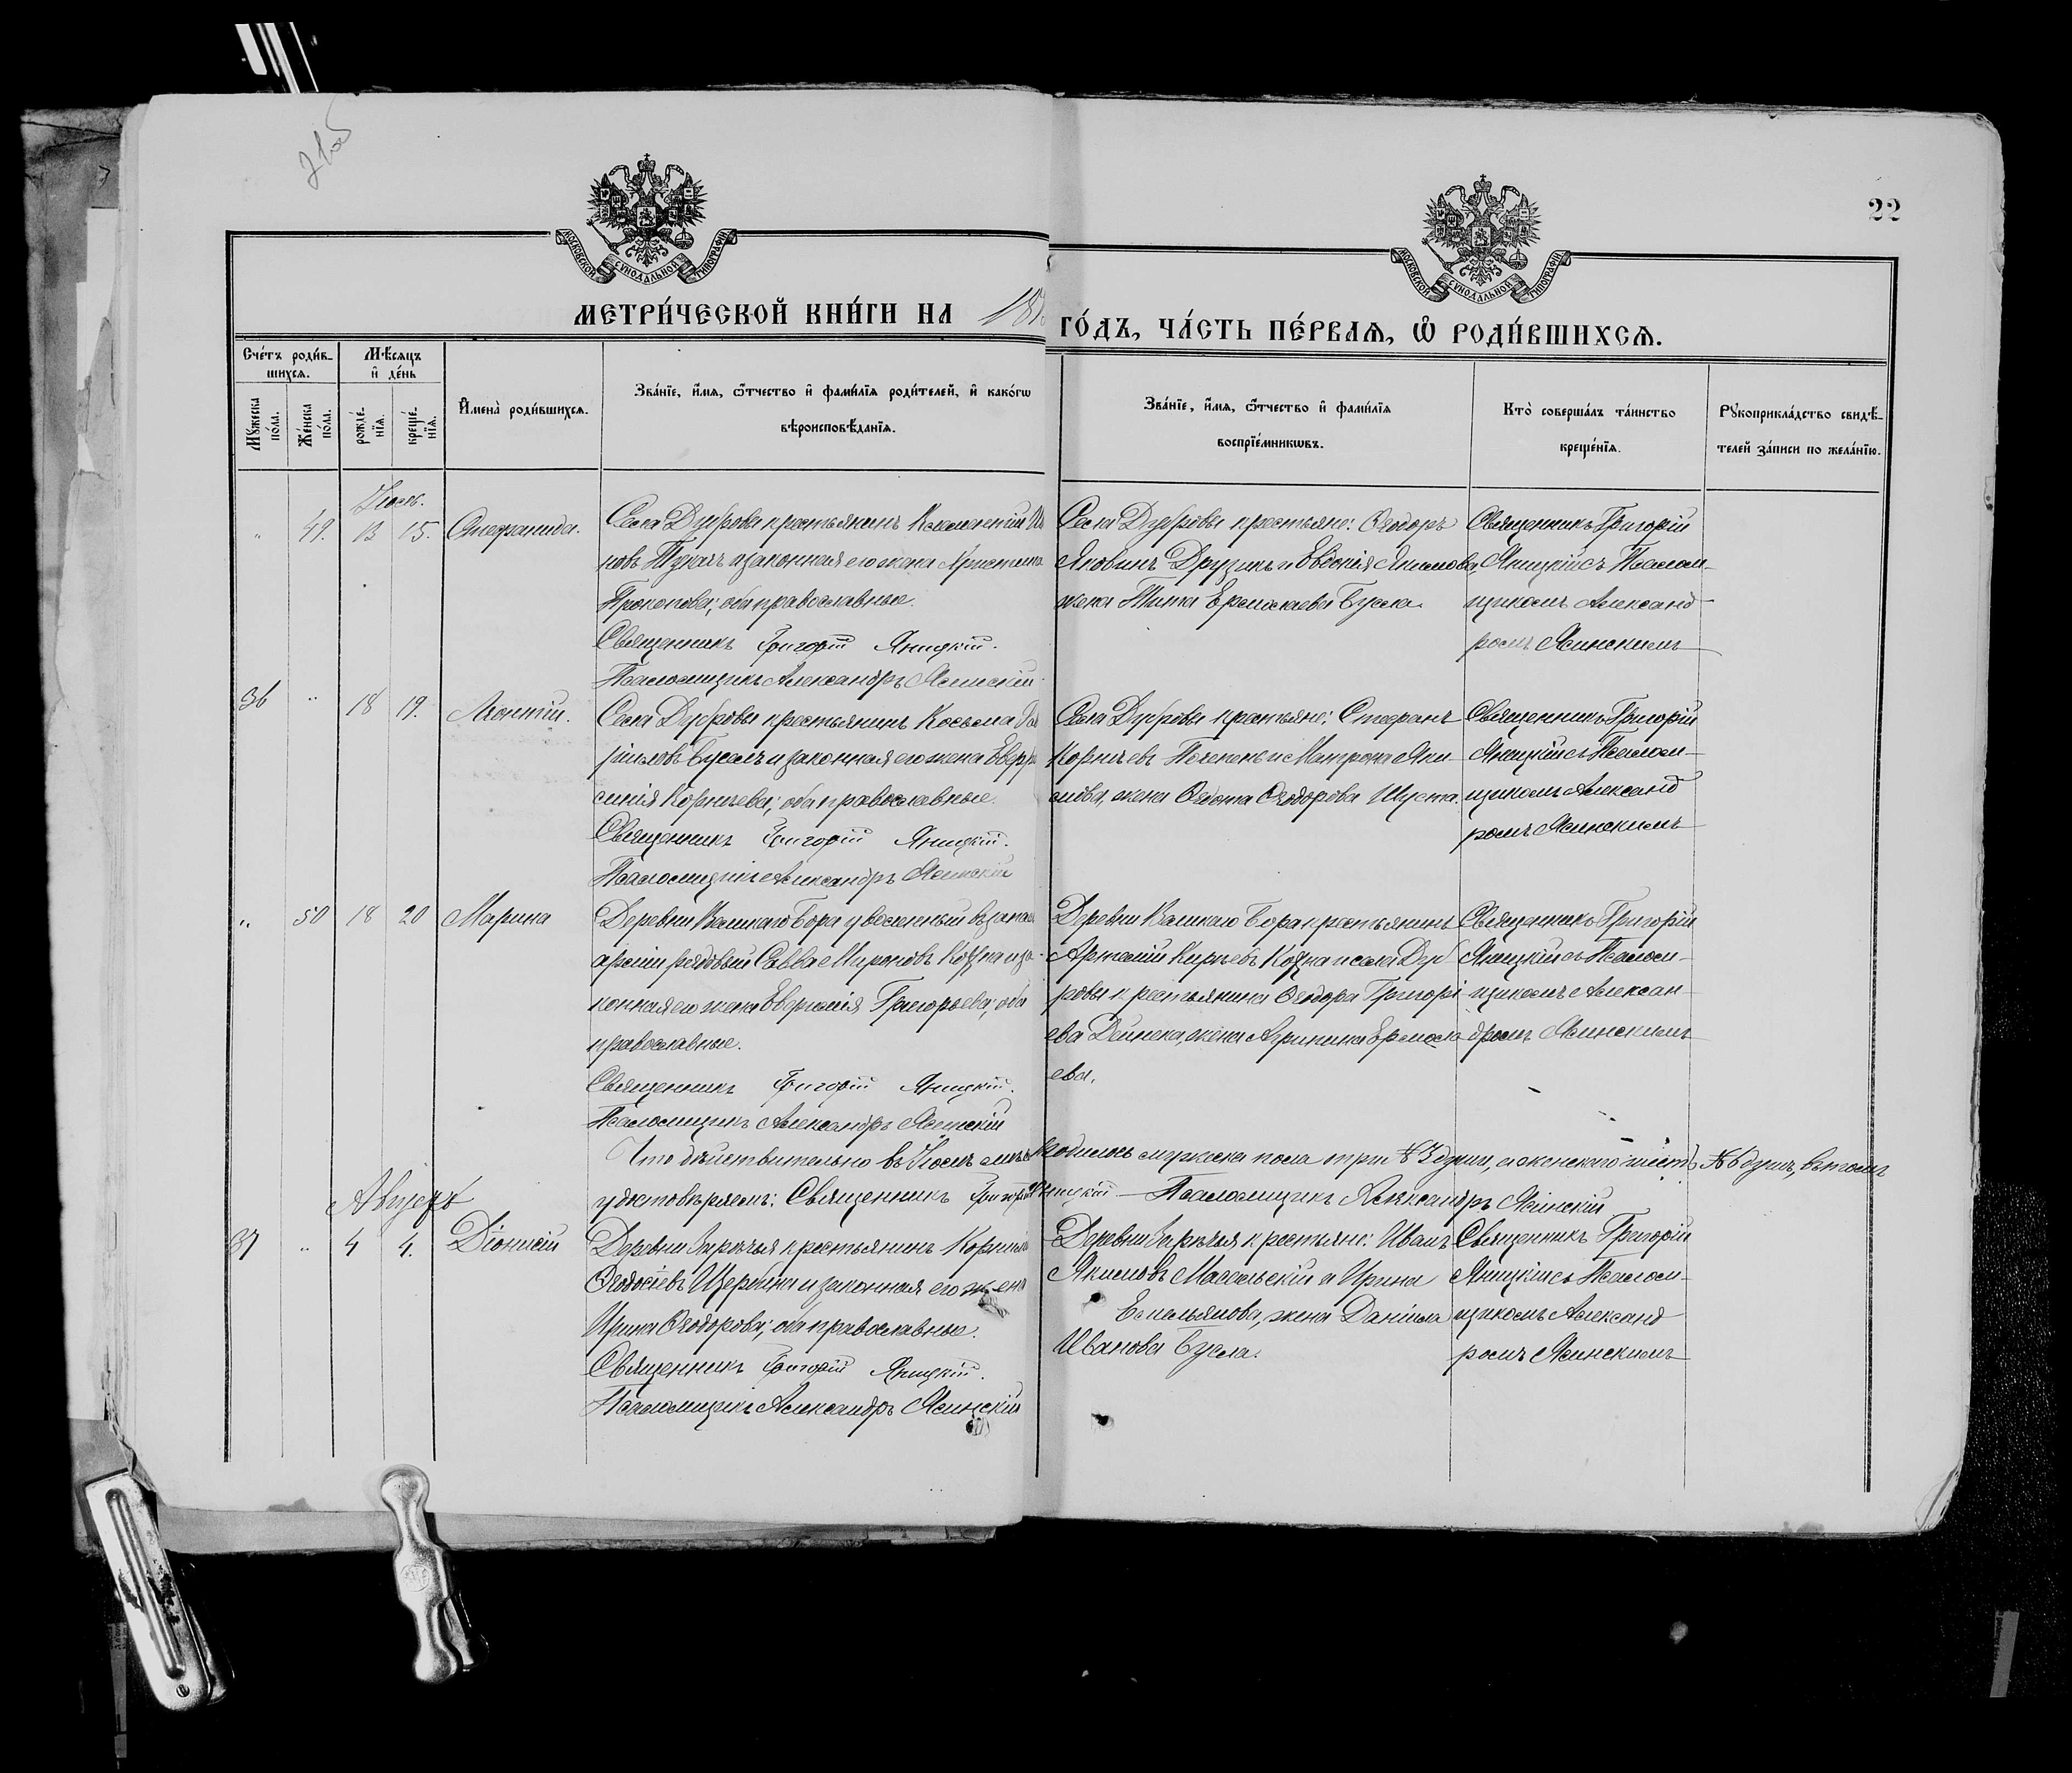 22
МОСКОВСКОЙ СУНОДАЛЬНОЙ ТИПОГРАФІИ
МОСКОВСКОЙ СУНОДАЛЬНОЙ ТИПОГРАФІИ
МЕТРИ́ЧЕСКОЙ КНИ́ГИ НА
ГО́ДЪ, ЧА́СТЬ ПЕ́РВАѦ, Ѡ҆ РОДИ́ВШИХСѦ.
Сче́тъ роди́в-
шихся.
Мѣ́сяцъ
и҆ де́нь
Мꙋ́жеска
по́ла.
Же́нска
по́ла.
рожде́-
нїѧ.
креще́-
нїѧ.
И҆мена̀ роди́вшихсѧ.
Зва́нїе, и҆́мѧ, ѻ҆́тчество и҆ фами́лїѧ роди́телей, и҆ како́гѡ
вѣроисповѣ́данїѧ.
Зва́нїе, и҆́мѧ, ѻ҆́тчество и҆ фами́лїѧ
воспрїе́мникѡвъ.
Кто̀ соверша́лъ та́инство
креще́нїѧ.
Рꙋкоприкла́дство свидѣ́-
телей за́писи по жела́нїю.
Іюль.
49. 13 15. Стефанида.
Села Дубровы крестьянинъ
новъ и законная его жена Христина
Прокопова; оба православные.
Священникъ Григорій Яницкій.
Псаломщикъ Александръ Ясинскій
Села Дубровы крестьяне: Ѳеодоръ
Яковинъ Друзикъ и Евдокія Якимова,
жена Тита Ермолаева Бусла.
Священникъ Григорій
Яницкій съ Псалом-
щикомъ Александ-
ромъ Ясинскимъ
36 " 18 19. Леонтій.
Села Дубровы крестьянинъ Косьма
ріиловъ Буселъ и законная его жена Евфро
синія Корнѣева; оба православные.
Священникъ Григорій Яницкій.
Псаломщикъ Александръ Ясинскій
Села Дубровы крестьяне: Стефанъ
Корнѣевъ и Матрона Яки-
мова, жена Ѳеодорова Шуста.
Священникъ Григорій
Яницкій съ Псалом-
щикомъ Александ
ромъ Ясинскимъ
" 50 18 20 Марина
Деревни Великаго Бора уволенный въ запасъ
арміи рядовый Савва Мироновъ и за-
конная его жена Евфимія Григорьева; оба
православные.
Священникъ Григорій Яницкій.
Псаломщикъ Александръ Ясинскій
Деревни Великаго Бора крестьянинъ
Артемій и села Дуб
ровы крестьянина Ѳеодора Григорі
ева Дейнека, жена Агрипина Ермола
ева.
Священникъ Григорій
Яницкій съ Псалом-
щикомъ Алексан-
дромъ Ясинскимъ
Что дѣйствительно въ Іюлѣ родилось мужеска пола три № 3 души, а женскаго шесть № 6 душъ, въ томъ
удостовѣряемъ: Священникъ Григорій Яницкій Псаломщикъ Александръ Ясинскій
Августъ
37 " 4 4. Діонисій
Деревни Зарѣчья крестьянинъ Корнилій
Ѳеодосіевъ Щербина и законная его жена
Ирина Ѳеодорова; оба православные.
Священникъ Григорій Яницкій.
Псаломщикъ Александръ Ясинскій
Деревни Зарѣчья крестьяне: Иванъ
Якимовъ и Ирина
Емельянова, жена Даніила
Иванова Бусла.
Священникъ Григорій
Яницкій съ Псалом-
щикомъ Александ
ромъ Ясинскимъ